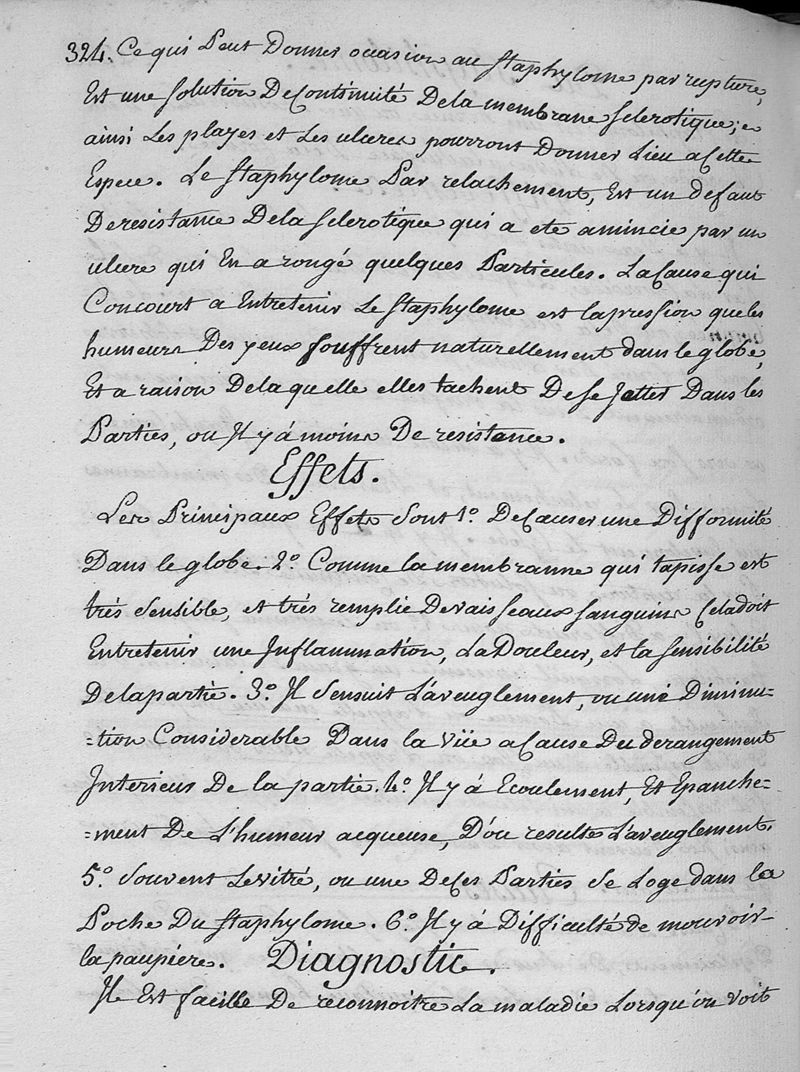 324. Ce qui Peut Donner occasion au staphylome par rupture,
Est une solution De Continuité De la membrane sclerotique; et
ainsi Les playes et Les ulceres pourront Donner Lieu a Cette
Espece. Le staphylome Par relachement, Est un defaut
De resistance De la sclerotique qui a eté amincie par un
ulcere qui En a rongé quelques Particules. La Cause qui
Concourt a Entretenir Le staphylome est la pression que les
humeurs Des yeux souffrent naturellement dans le globe,
Et a raison De la quelle elles tachent De se Jetter Dans les
Parties, ou Il y à moins De resistance.
Effets.
Les Principaux Effets sont 1.° De Causer une Difformité
Dans le globe. 2.° Comme la membranne qui tapisse est
trés sensible, et trés remplie De vaisseaux sanguins Cela doit
Entretenir une Inflammation, La Douleur, et la sensibilité
De la partie. 3.° Il s'ensuit L'aveuglement, ou une Diminu-
=tion Considerable Dans la Vüe a Cause Du derangement
Interieur De la partie. 4.° Il y à Ecoulement, Et Epanche=
=ment De L'humeur acqueuse, D'ou resulte L'aveuglement.
5.° Souvent Le vitré, ou une De Ces Parties se Loge dans la
Poche Du staphylome. 6.° Il y à Difficulté de mouvoir
la paupiere. Diagnostic.
Il Est facille De reconnoitre La maladie Lorsqu'on voit